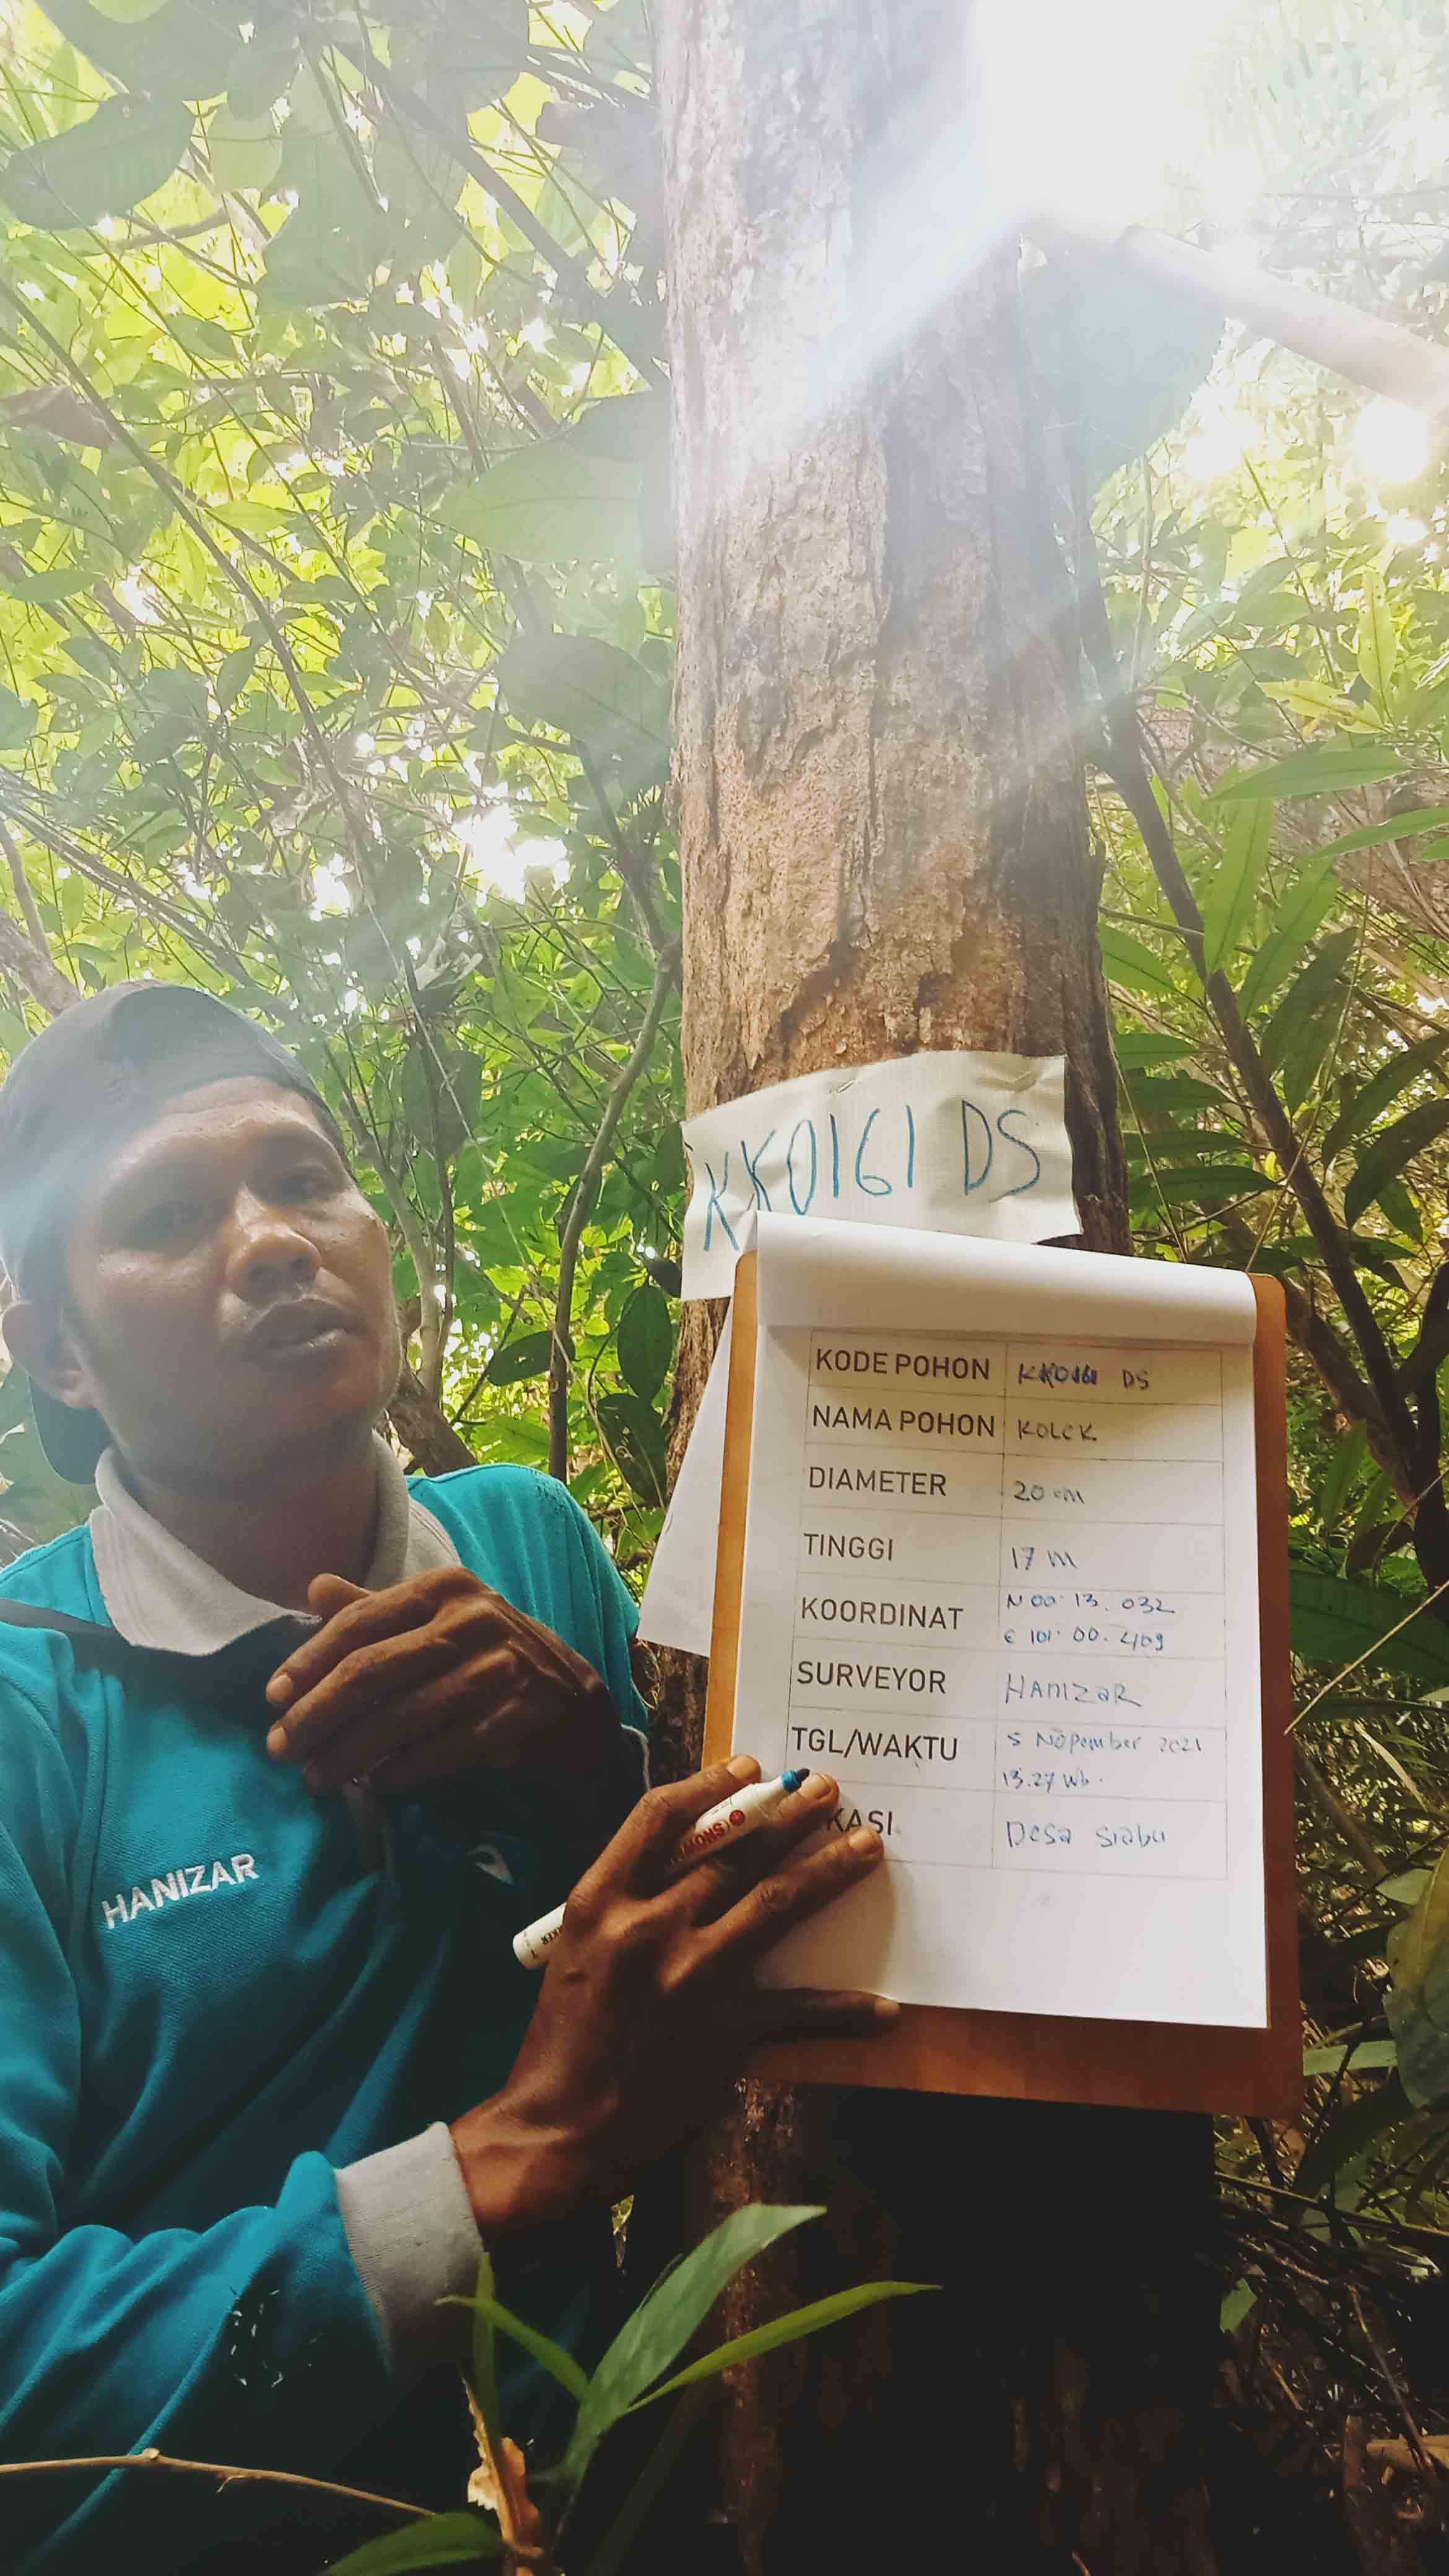 KK0161 DS
KODE POHON KK0161 DS
NAMA POHON KOLEK
DIAMETER 20 cm
TINGGI 17 m
KOORDINAT N 00. 13. 032
E 101. 00. 409
SURVEYOR HANIZAR
TGL/WAKTU 5 Nopember 2021
13.27 Wb.
KASI Desa Siabu
HANIZAR
SNOW